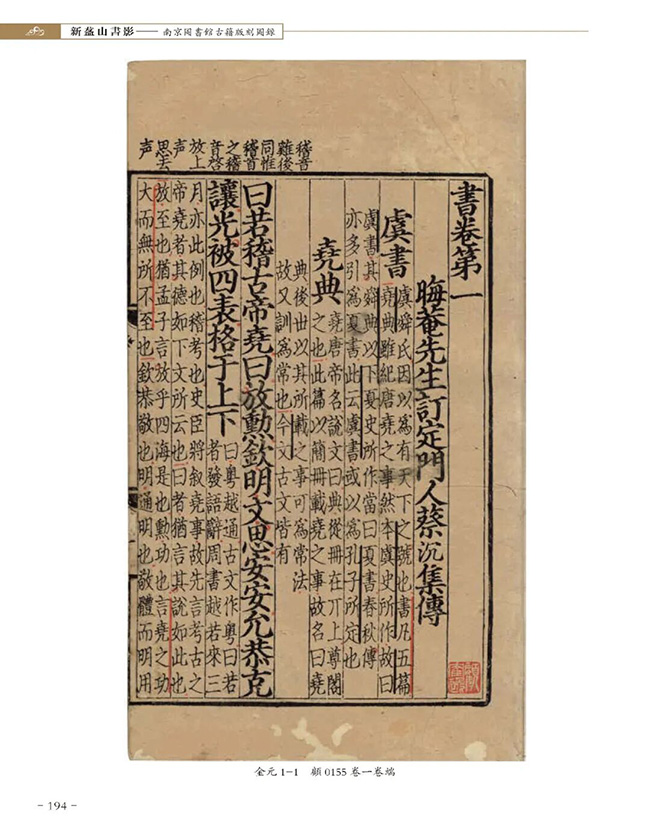 新盋山書影——南京圖書館古籍版刻圖錄
稽音
雖後
同惟
稽首
之稽
音啓
放上
声
思去
声
書卷第一
晦菴先生訂定門人蔡沉集傳
虞書
虞舜氏因以爲有天下之號也書凡五篇
堯典雖紀唐堯之事然本虞史所作故曰
虞書其舜典以下夏史所作當曰夏書春秋傳
亦多引爲夏書此云虞書或以爲孔子所定也
堯典
堯唐帝名說文曰典從冊在丌上尊閣
之也此篇以簡冊載堯之事故名曰堯
典後世以其所載之事可爲常法
故又訓爲常也今文古文皆有
曰若稽古帝堯曰放勲欽明文思安安允恭克
讓光被四表格于上下
曰粤越通古文作粤曰若
者發語辭周書越若來三
月亦此例也稽考也史臣將叙堯事故先言考古之
帝堯者其德如下文所云也曰者猶言其說如此也
放至也猶孟子言放乎四海是也勲功也言堯之功
大而無所不至也欽恭敬也明通明也敬體而明用
金元1-1 顧0155 卷一卷端
- 194 -